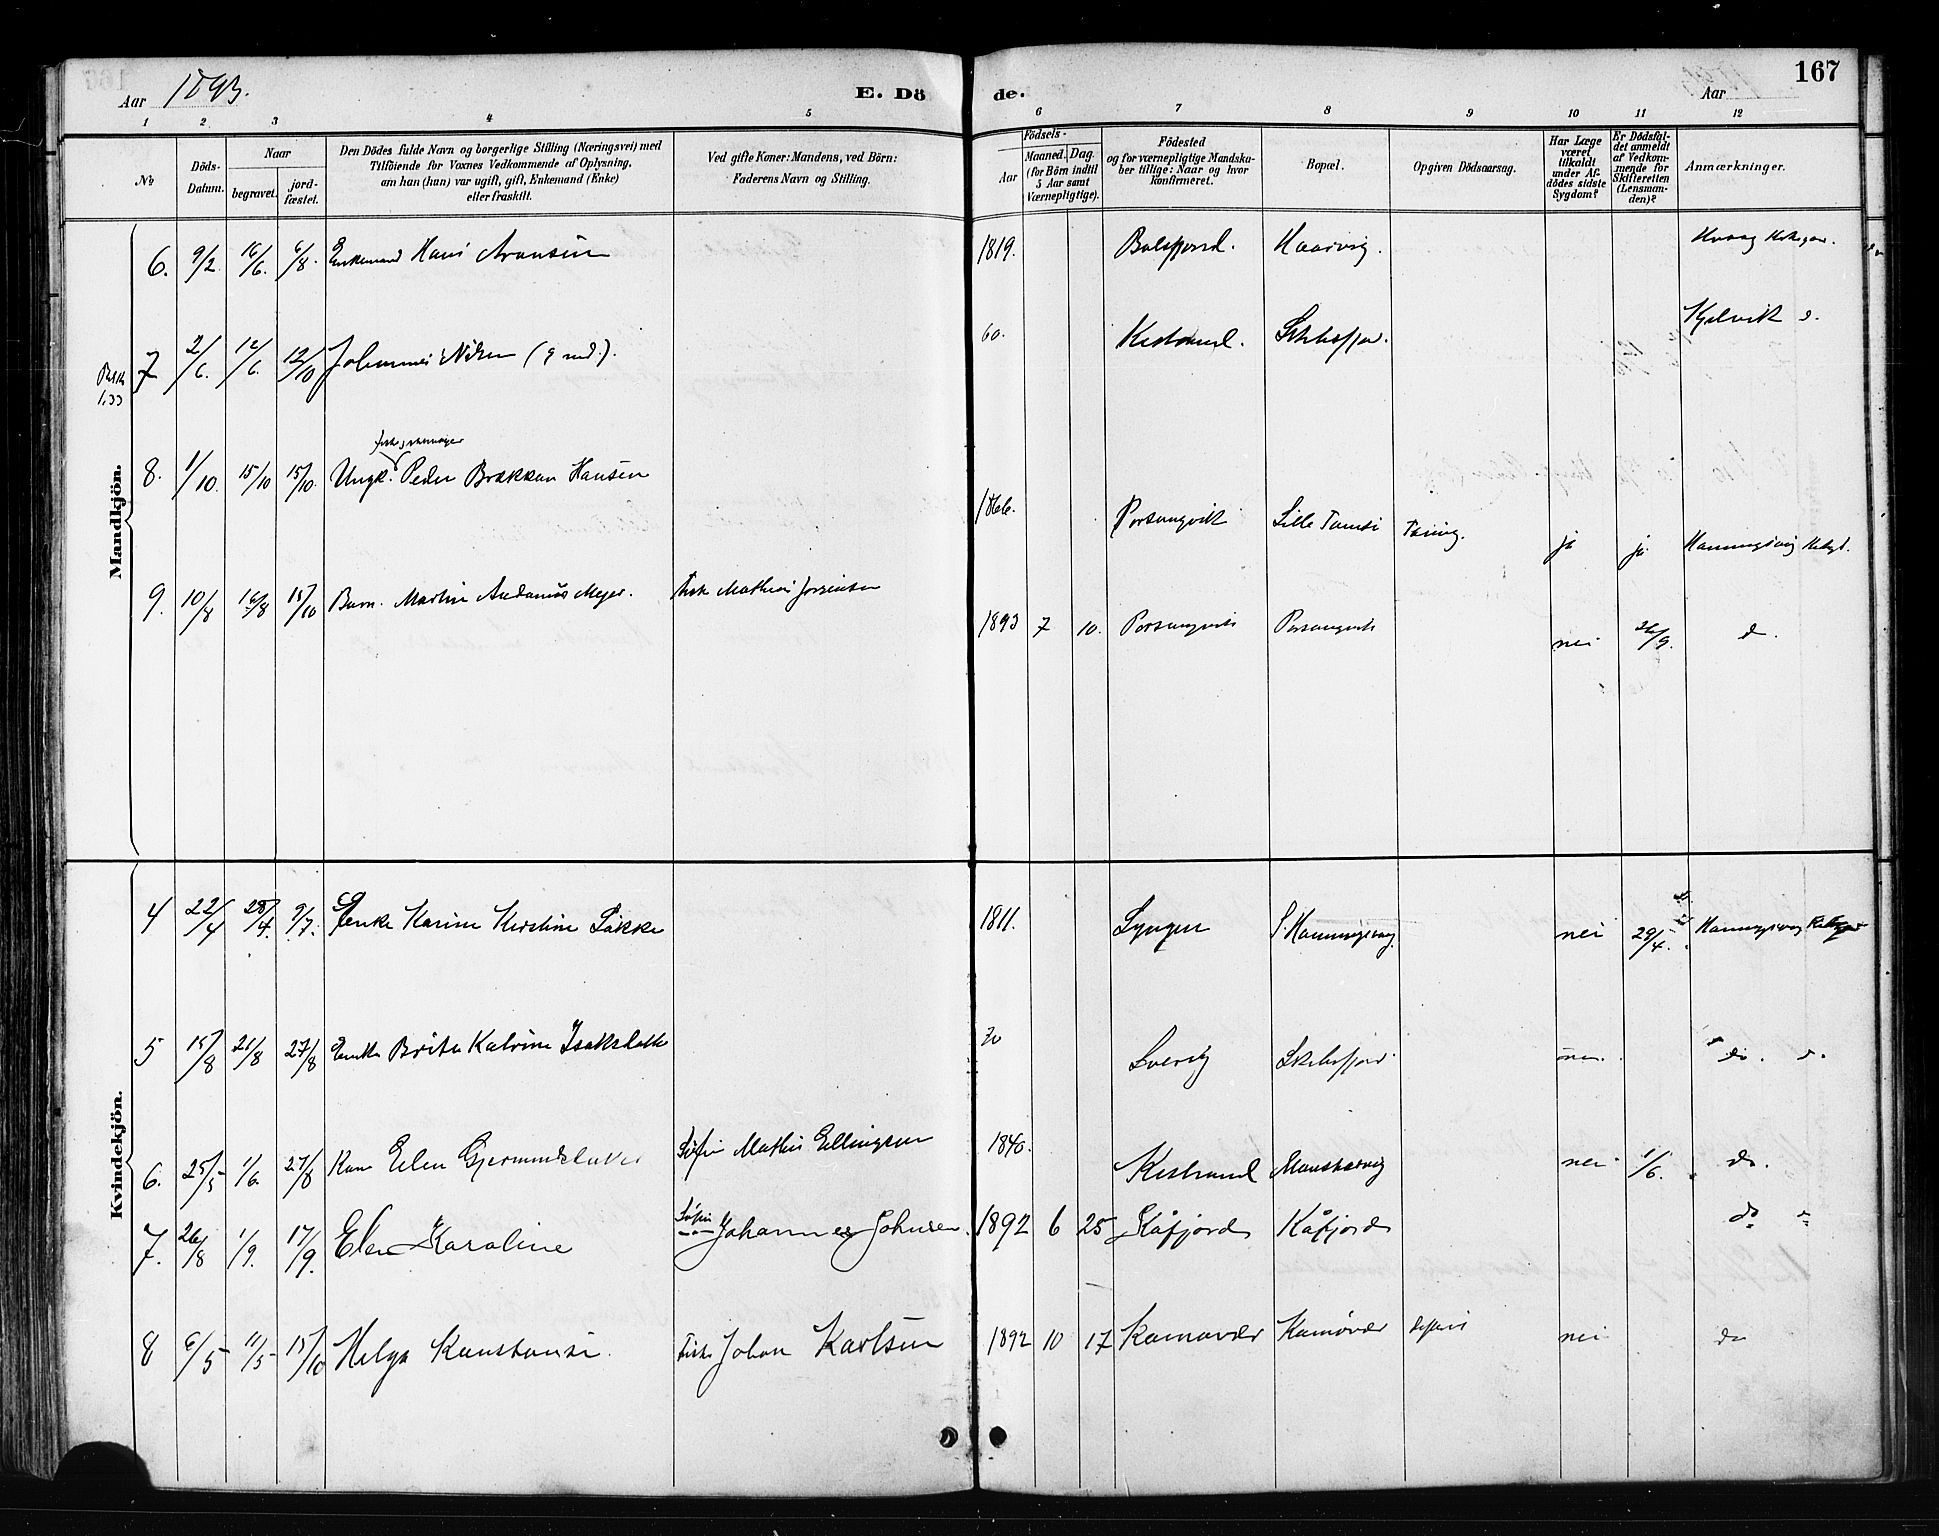 Aar 1893. E. Dö de. Aar 167
1 2 3 4 5 6 7 8 9 10 11 12
№
Döds-Datum.
Naar
begravet.
jord-fæstet.
Den Dödes fulde Navn og borgerlige Stilling (Næringsvei) med
Tilföiende for Voxnes Vedkommende af Oplysning,
om han (hun) var ugift, gift, Enkemand (Enke)
eller fraskilt.
Ved gifte Koner: Mandens, ved Börn:
Faderens Navn og Stilling.
Födsels-
Aar
Maaned. Dag.
(for Börn indtil
5 Aar samt
Værnepligtige).
Födested
og for værnepligtige Mandska-
ber tillige: Naar og hvor
konfirmeret.
Bopæl.
Opgiven Dödsaarsag.
Har Læge
været
tilkaldt
under Af-
dödes sidste
Sygdom?
Er Dödsfal-
det anmeldt
af Vedkom-
mende for
Skifteretten
(Lensman-
den)?
Anmærkninger.
Mandkjön.
6. 9/2. 16/6. 6/8. Enkemand Hans Aronsen 1819. Balsfjord. Kaarvig.
7 2/6. 12/6. 12/10 Johannes Nilsen (9 md.). 60. Kistrand. Kjelvik d.
8. 1/10. 15/10 15/10. Ungk. Peder Brækkan Hansen 1866. Porsangvik Lille Tamsö Tæring. ja ja. Honningsvaag
9. 10/8 16/8 15/10 Barn. Martin Andreas Meyer. Fisk. Mathias Jørgensen 1893 7 10. Porsangvik Porsangvik nei 26/9. d.
Kvindekjön.
4 22/4 28/4. 9/7. Enke Karine Kirstine Løkke 1811. Lyngen S. Honningsvaag. nei 29/4. Honningsvaag
5 15/8 21/8 27/8 Enke Brita Katrine Isaksdatter 70 Sverig Skibsfjord nei. do. d.
6. 25/5 1/6. 27/8 Kone Elen Gjermundsdatter Søfin Mathis Ellingsen 1840. Kistrand nei 1/6. do.
7. 26/8 1/9. 17/9. Elen Karoline Søfin Johannes Johnsen 1892 6 25 Kåfjord Kåfjord do
8 6/5 11/5 15/10 Helga Konstanse. Fisk. Johan Karlsen 1892 10 17 Kamøvær Kamøvær nei do